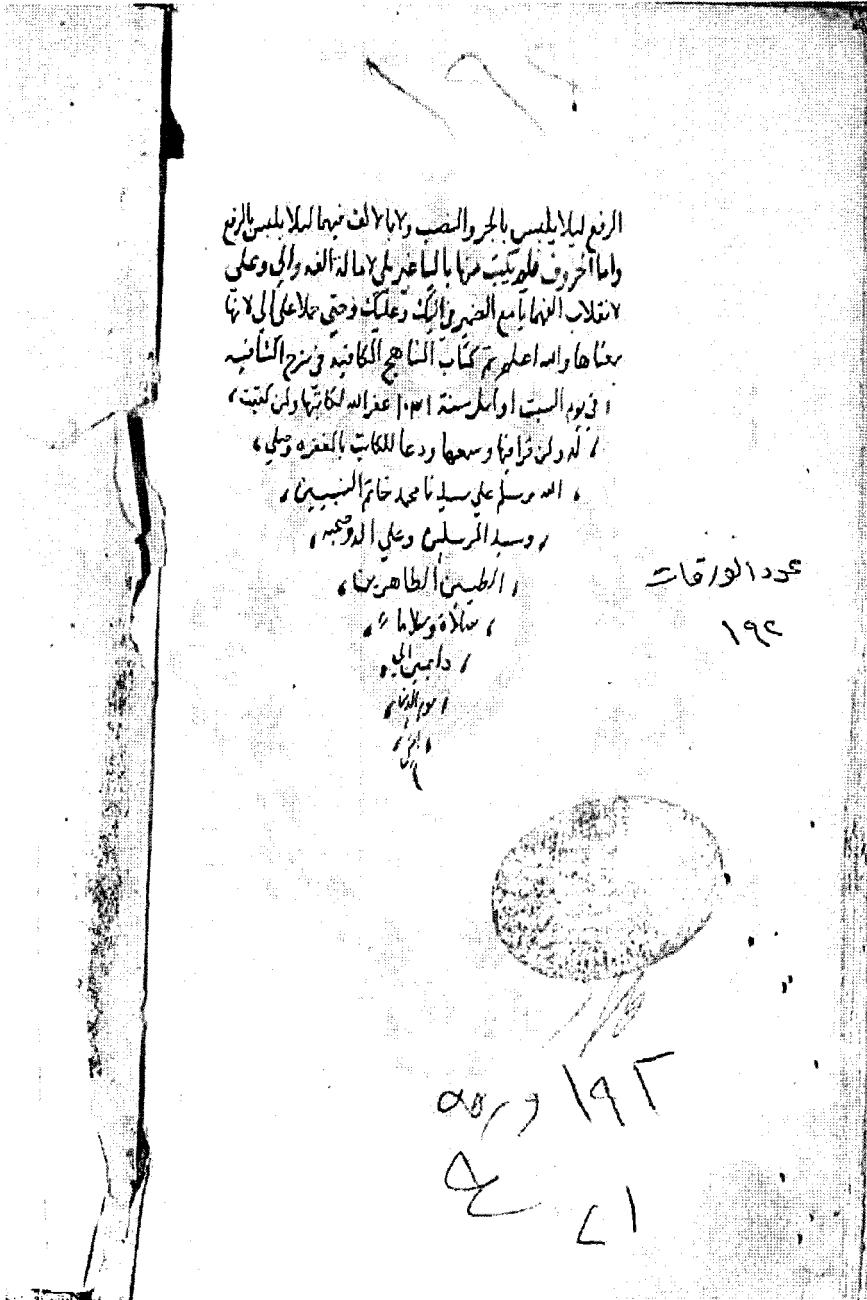 ١٩٢
الرفع ليلا يلبس بالجر والنصب ولا بالالف فيهما ليلا يلبس بالرفع
واما الحروف فلم يكتب منها باليا غير بلي لامالة الفه والي وعلي
لانقلاب الفهما يا مع الضمير في اليك وعليك وحتي حملا علي الي لانها
بمعناها والله اعلم تم كتاب المناهج الكافيه في شرح الشافيه
في يوم السبت اوايل سنة ١٠٣١ غفر الله لكاتبها ولمن كتبت
له ولمن قرا فيها وسمعها ودعا للكاتب بالمغفره وصلي
الله وسلم علي سيدنا محمد خاتم النبيين
وسيد المرسلين وعلي اله وصحبه
الطيبين الطاهرين
صلاة وسلاما
دايمين الي
يوم الدين
عدد الورقات
١٩٢
١٩٢ ورقه